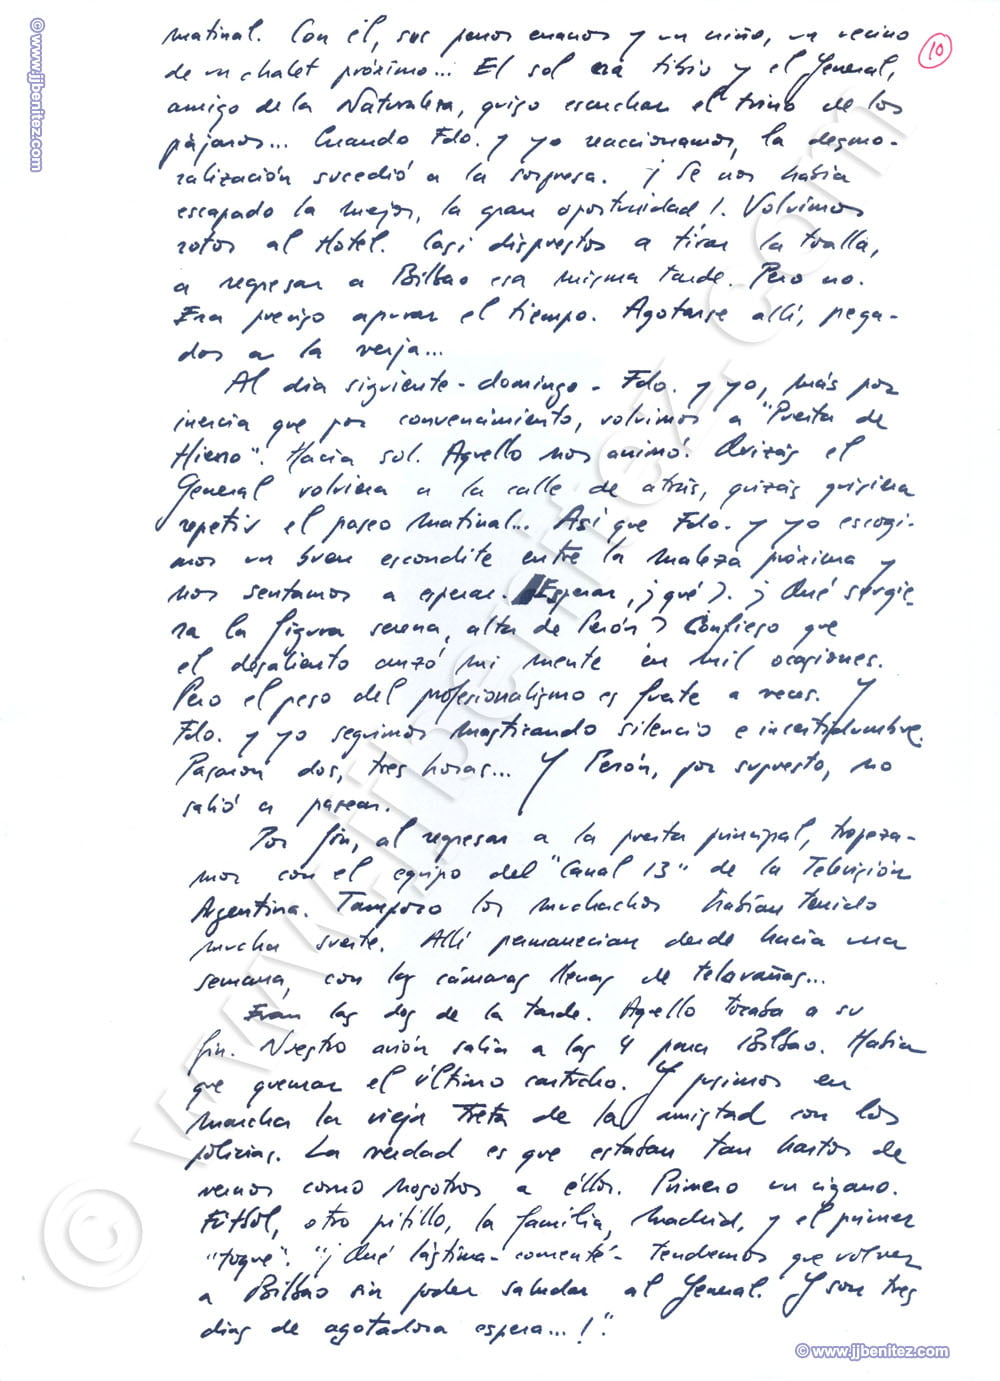 ©www.jjbenitez.com
10
matinal. Con él, sus perros enanos y un niño, un vecino
de un chalet próximo... El sol era tibio y el General,
amigo de la Naturaleza, quiso escuchar el trino de los
pájaros... Cuando Fdo. y yo reaccionamos, la desmo-
ralización sucedió a la sorpresa. ¡Se nos había
escapado la mejor, la gran oportunidad!. Volvimos
rotos al Hotel. Casi dispuestos a tirar la toalla,
a regresar a Bilbao esa misma tarde. Pero no.
Era preciso apurar el tiempo. Agotarse allí, pega-
dos a la verja...
Al día siguiente - domingo - Fdo. y yo, más por
inercia que por convencimiento, volvimos a "Puerta de
Hierro". Hacía sol. Aquello nos animó. Quizás el
General volviera a la calle de atrás, quizás quisiera
repetir el paseo matinal... Así que Fdo. y yo escogi-
mos un buen escondite entre la maleza próxima y
nos sentamos a esperar. Esperar, ¿qué?. ¿Qué surgie-
ra la figura serena, alta de Perón? Confieso que
el desaliento cruzó mi mente en mil ocasiones.
Pero el peso del profesionalismo es fuerte a veces. Y
Fdo. y yo seguimos masticando silencio e incertidumbre.
Pasaron dos, tres horas... Y Perón, por supuesto, no
salió a pasear.
Por fin, al regresar a la puerta principal, tropeza-
mos con el equipo del "Canal 13" de la Televisión
Argentina. Tampoco los muchachos habían tenido
mucha suerte. Allí permanecían desde hacía una
semana, con las cámaras llenas de telarañas...
Eran las dos de la tarde. Aquello tocaba a su
fin. Nuestro avión salía a las 4 para Bilbao. Había
que quemar el último cartucho. Y pusimos en
marcha la vieja treta de la amistad con los
policías. La verdad es que estaban tan hartos de
vernos como nosotros a éllos. Primero un cigarro.
Fútbol, otro pitillo, la família, Madrid, y el primer
"toque". "¡Qué lástima - comenté - tendremos que volver
a Bilbao sin poder saludar al General. Y son tres
días de agotadora espera...!".
www.jjbenitez.com
©
© www.jjbenitez.com